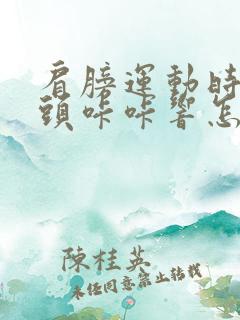 肩膀運動時
頭咔咔響怎
陳桂英
未經同意禁止轉載